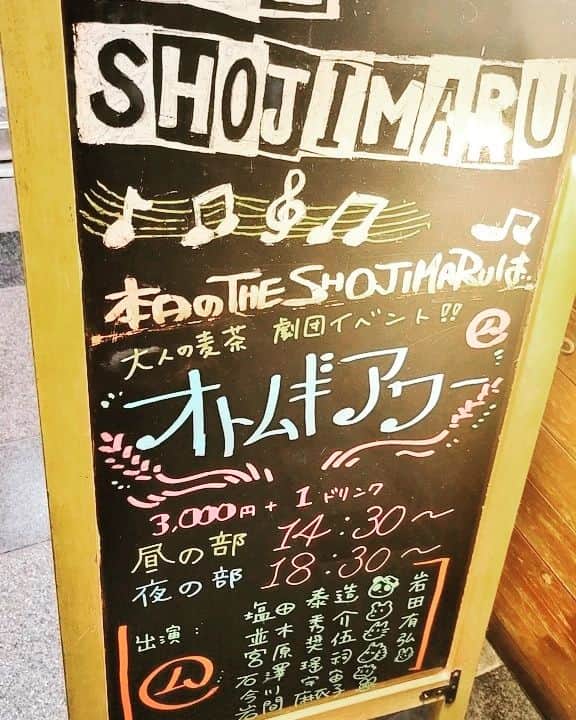 SHOJIMARU
本日のTHE SHOJIMARUは
大人の麦茶 劇団イベント!!
ム
オトムギアワー
3,000円+1ドリンク
昼の部 14:30〜
夜の部 18:30〜
出演:
塩田泰造
並木秀介
宮原奨伍
石澤瑶祠
今川宇宙
岩間麻衣子
岩田有弘
ム